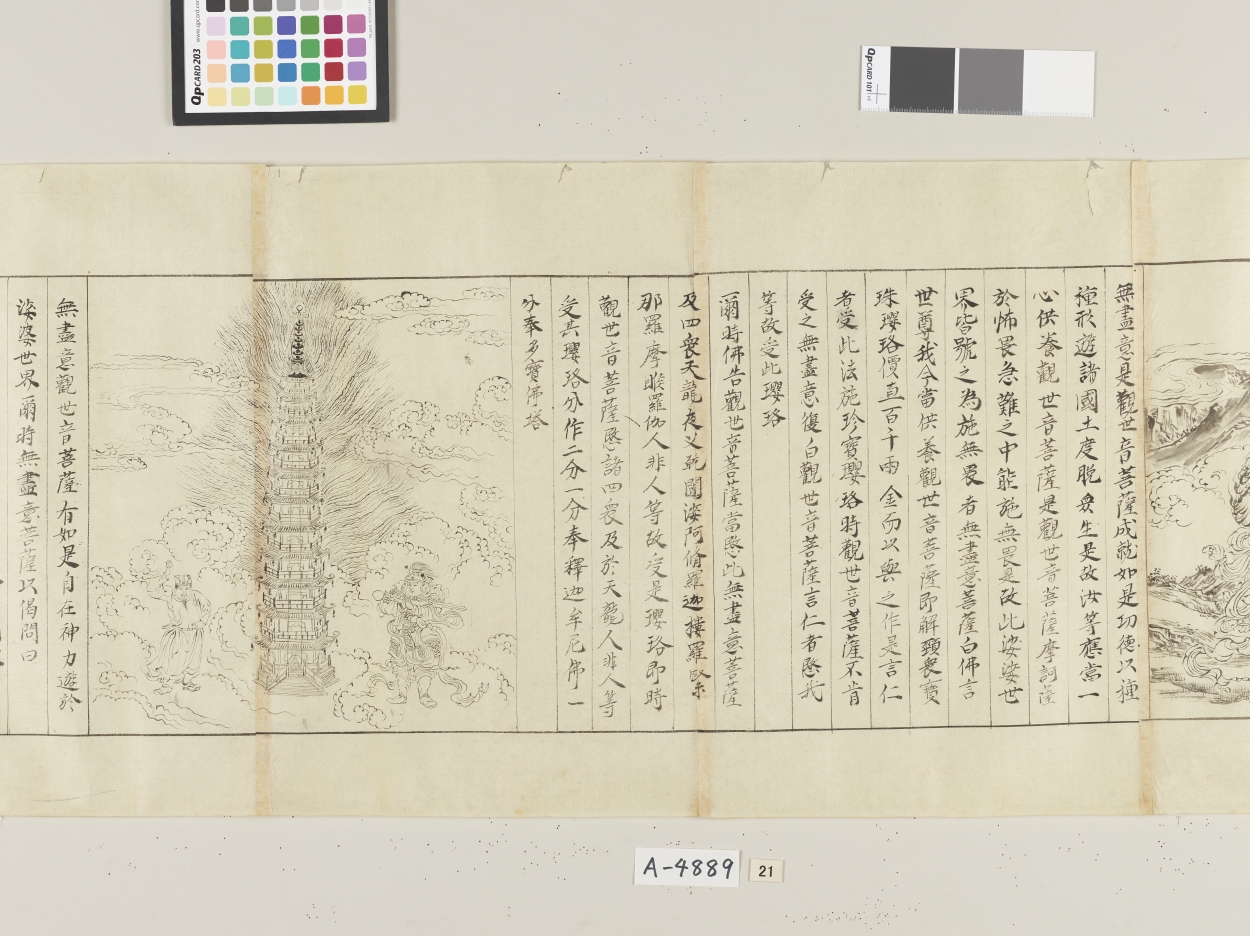 無盡意是觀世音菩薩成就如是功德以種
種形遊諸國土度脫衆生是故汝等應當一
心供養觀世音菩薩是觀世音菩薩摩訶薩
於怖畏急難之中能施無畏是故此娑婆世
界皆號之為施無畏者無盡意菩薩白佛言
世尊我今當供養觀世音菩薩即解頸衆寶
珠瓔珞價直百千兩金而以與之作是言仁
者受此法施珍寶瓔珞時觀世音菩薩不肯
受之無盡意復白觀世音菩薩言仁者愍我
等故受此瓔珞
爾時佛告觀世音菩薩當愍此無盡意菩薩
及四衆天龍夜叉乾闥婆阿脩羅迦樓羅緊
那羅摩睺羅伽人非人等故受是瓔珞即時
觀世音菩薩愍諸四衆及於天龍人非人等
受其瓔珞分作二分一分奉釋迦牟尼佛一
分奉多寶佛塔
無盡意觀世音菩薩有如是自在神力遊於
娑婆世界爾時無盡意菩薩以偈問曰
QPCARD 203
www.qpcard.com
QPCARD 101
A-4889
21